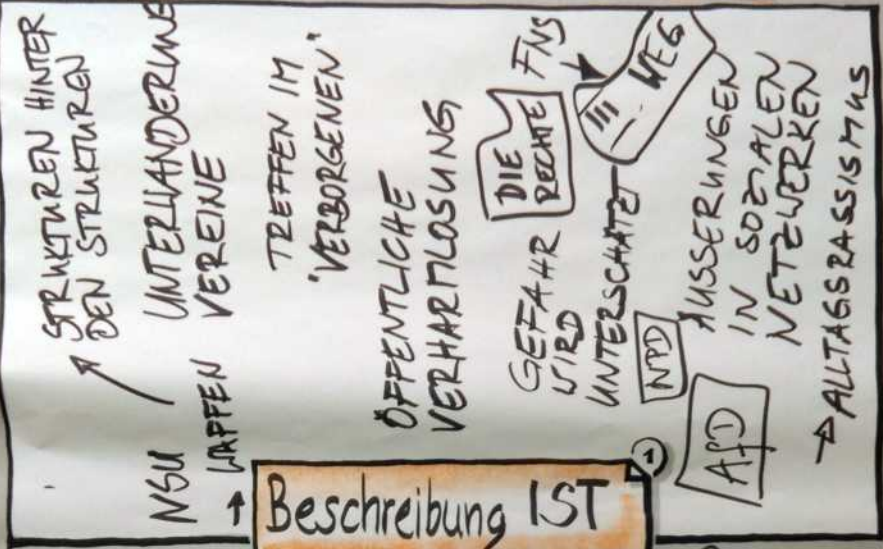 Beschreibung IST
1
NSU
WAFFEN
STRUKTUREN HINTER
DEN STRUKTUREN
UNTERWANDERUNG
VEREINE
TREFFEN IM
"VERBORGENEN"
ÖFFENTLICHE
VERHARMLOSUNG
GEFAHR
WIRD
UNTERSCHÄTZT
DIE
RECHTE
FNS
III. WEG
NPD
AfD
ÄUSSERUNGEN
IN SOZIALEN
NETZWERKEN
→ ALLTAGSRASSISMUS